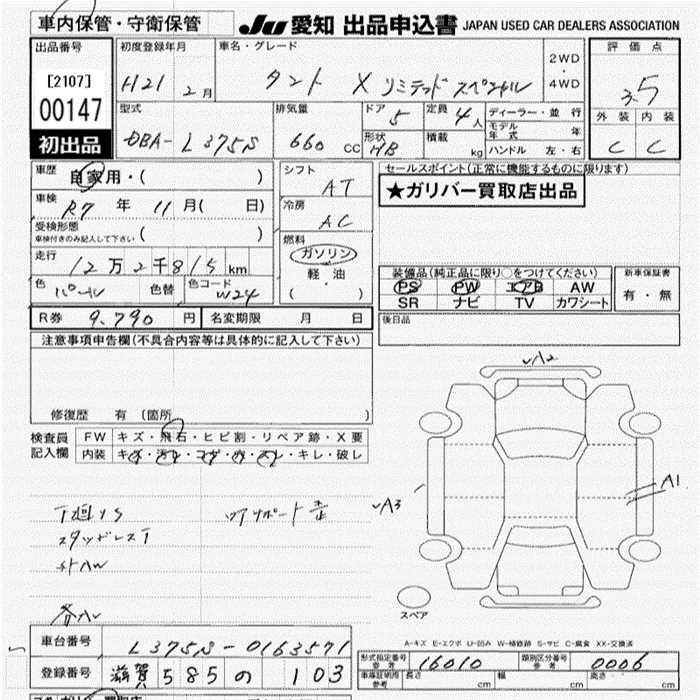 車内保管・守衛保管
JU 愛知 出品申込書 JAPAN USED CAR DEALERS ASSOCIATION
出品番号
[2107]
00147
初出品
初度登録年月
H21 2月
車名・グレード
タント X リミテッド スペシャル
2WD
・
4WD
評価点
3.5
外装 内装
C C
型式
DBA-L375S
排気量
660 CC
ドア 5
形状 HB
定員 4人
積載 kg
ディーラー・並行
モデル年式 年
ハンドル 左・右
車歴
自家用・( )
車検
R7年 11月( 日)
受検形態
車検付きのみ記入して下さい ( )
走行
12万2千815km
色 パール 色替 色コード W24
シフト
AT
冷房
AC
燃料
ガソリン
軽油
( ・ )
セールスポイント(正常に機能するものに限ります)
★ガリバー買取店出品
装備品(純正品に限り○をつけてください)
PS PW エアB AW
SR ナビ TV カワシート
新車保証書
有・無
R券 9,790円 名変期限 月 日
後日品
注意事項申告欄(不具合内容等は具体的に記入して下さい)
修復歴 有 〔箇所 〕
検査員記入欄
FW キズ・飛石・ヒビ割・リペア跡・X要
内装 キズ・汚レ・コゲ・穴・スレ・キレ・破レ
スタッドレスT
外AW
A2
A1
A3
スペア
A-キズ E-エクボ U-凹み W-補修跡 S-サビ C-腐食 XX-交換済
車台番号 L375S-0163571
登録番号 滋賀 585 の 103
形式指定番号 参考 16010
類別区分番号 参考 0006
車庫証明用 参考 長さ cm 幅 cm 高さ cm